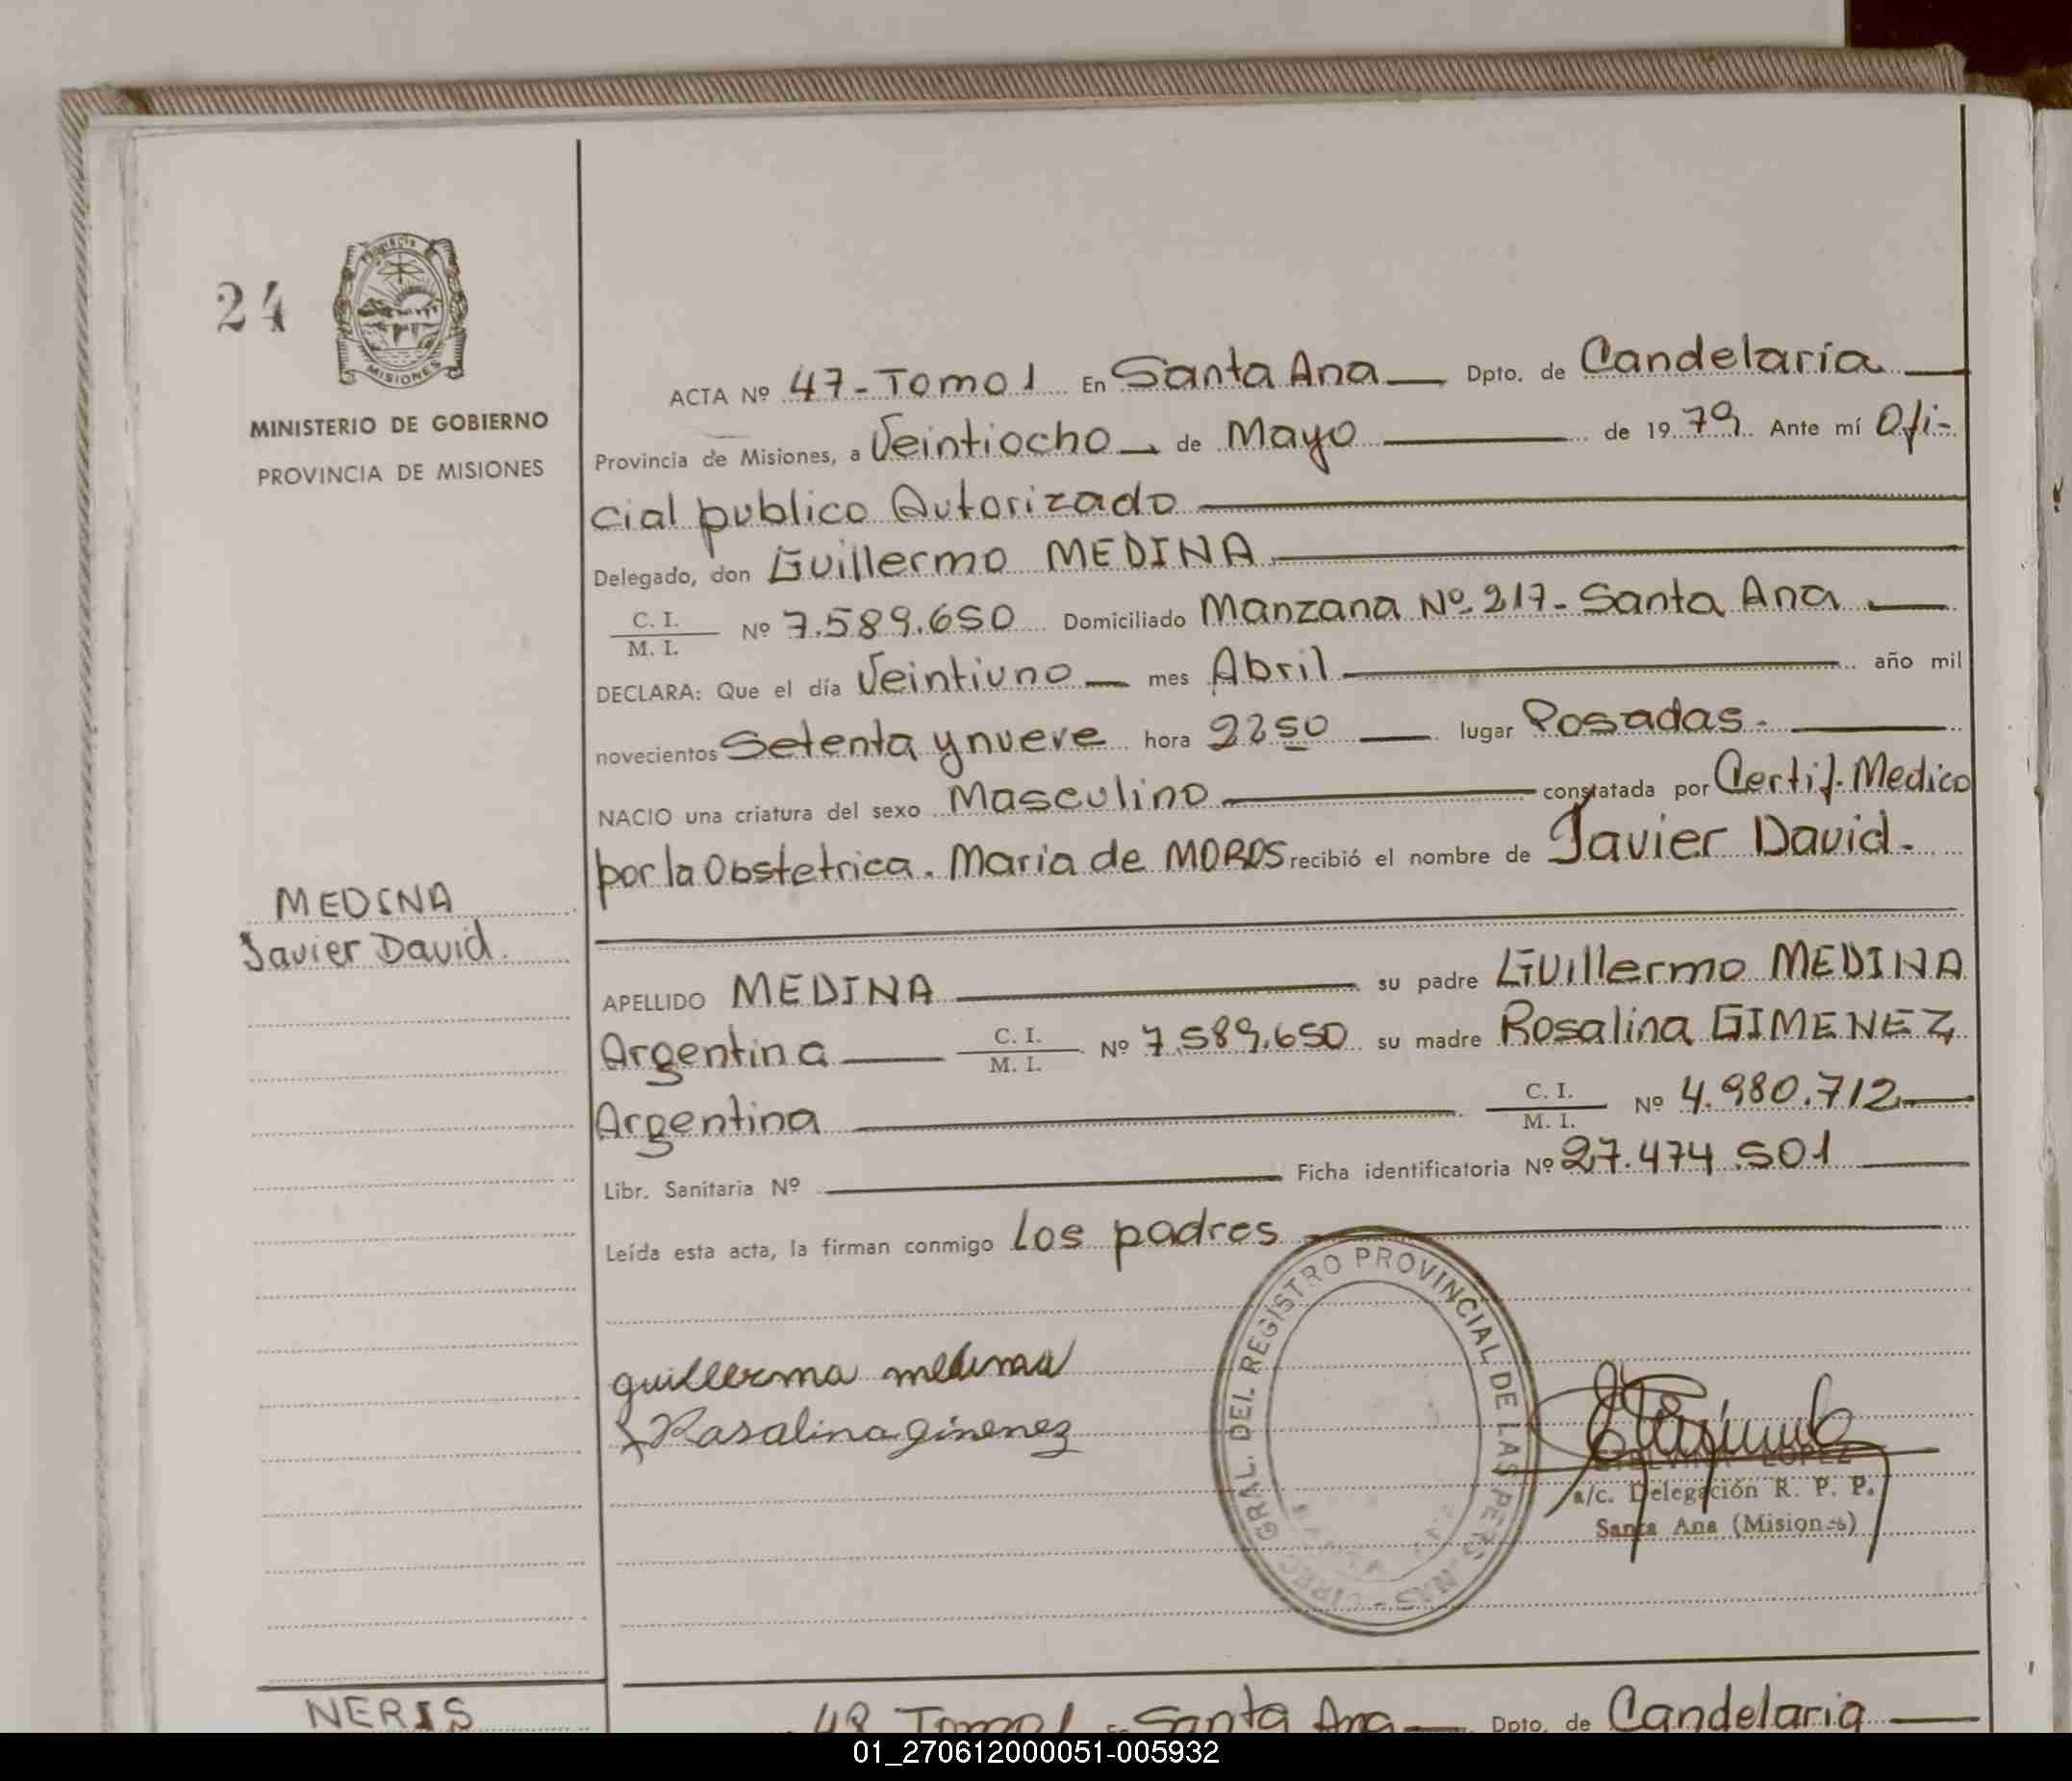 24
MISIONES
MINISTERIO DE GOBIERNO
PROVINCIA DE MISIONES
ACTA Nº 47-Tomo 1 En Santa Ana Dpto. de Candelaria
Provincia de Misiones, a Veintiocho de Mayo de 1979. Ante mí Ofi-
cial publico Autorizado
Delegado, don Guillermo MEDINA
C. I.
M. I.
Nº 7.589.650 Domiciliado Manzana Nº 217- Santa Ana
DECLARA: Que el día Veintiuno mes Abril año mil
novecientos Setenta y nueve hora 2250 lugar Posadas.
NACIO una criatura del sexo Masculino constatada por Certif. Medico
por la Obstetrica. Maria de MOROS recibió el nombre de Javier David.
MEDINA
Javier David.
APELLIDO MEDINA su padre Guillermo MEDINA
Argentina C. I.
M. I.
Nº 7.589.650 su madre Rosalina GIMENEZ
Argentina C. I.
M. I.
Nº 4.980.712
Libr. Sanitaria Nº Ficha identificatoria Nº 27.474.501
Leída esta acta, la firman conmigo los padres
guillermo medina
Rosalina Gimenez
DIREC. GRAL. DEL REGISTRO PROVINCIAL DE LAS PERSONAS
LOPEZ
a/c. Delegación R. P. P.
Santa Ana (Misiones)
NERIS
48 Tomo 1 En Santa Ana Dpto. de Candelaria
01_270612000051-005932